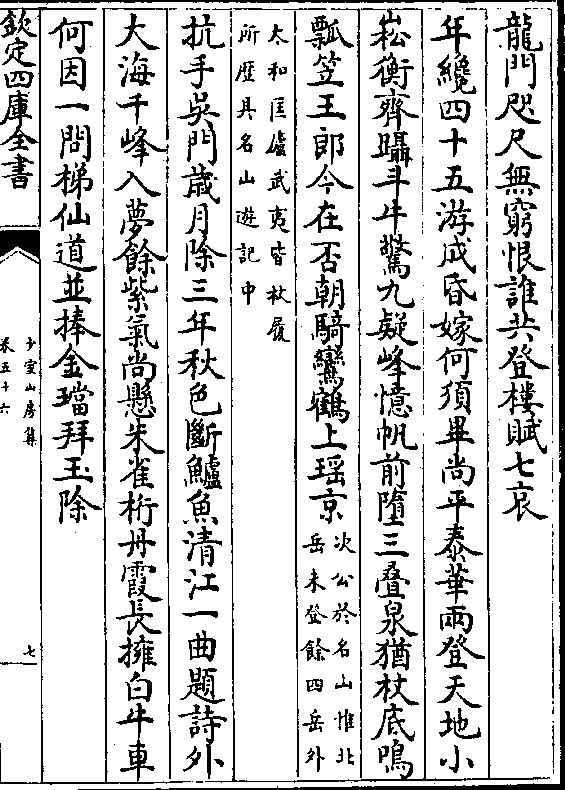 龍門咫尺無窮恨誰共登樓賦七哀
年纔四十五游成昏嫁何須畢尚平泰華兩登天地小
崧衡齊躡斗牛驚九疑峰憶帆前墮三疊泉猶杖底鳴
瓢笠王郎今在否朝騎鸞鶴上瑶京
次公於名山惟北
岳未登餘四岳外
太和匡廬武夷皆杖履
所歴具名山遊記中
抗手吳門歲月除三年秋色斷鱸魚清江一曲題詩外
大海千峰入夢餘紫氣尚懸朱雀桁丹霞長擁白牛車
何因一問梯仙道並捧金璫拜玉除
欽定四庫全書
少室山房集
卷五十六
七